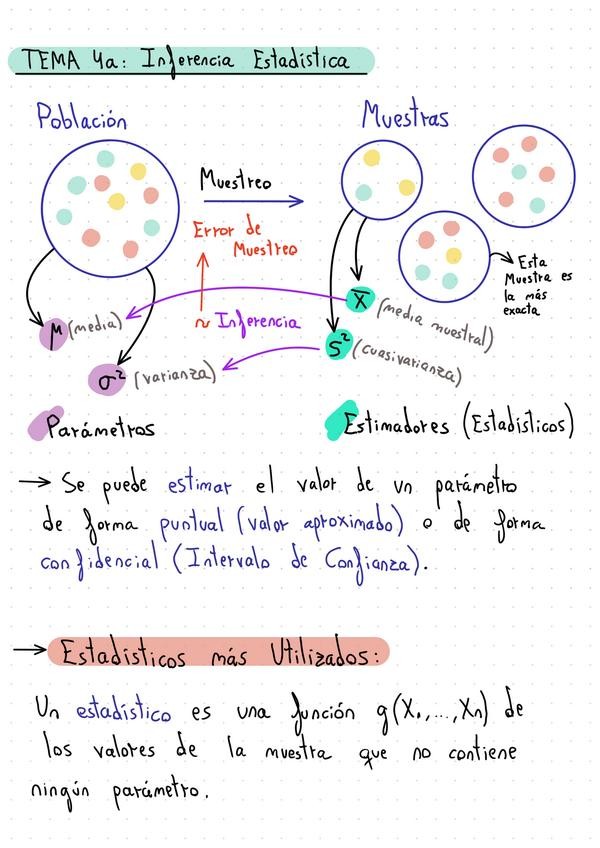 TEMA 4a: Inferencia Estadística
Población
Muestras
Muestreo
Error de
Muestreo
Esta
Muestra es
la más
exacta
~ Inferencia
μ (media)
σ² (varianza)
x̄ (media muestral)
S² (cuasivarianza)
Parámetros
Estimadores (Estadísticos)
→ Se puede estimar el valor de un parámetro
de forma puntual (valor aproximado) o de forma
confidencial (Intervalo de Confianza).
→ Estadísticos más Utilizados:
Un estadístico es una función g(X₁,...,Xn) de
los valores de la muestra que no contiene
ningún parámetro.